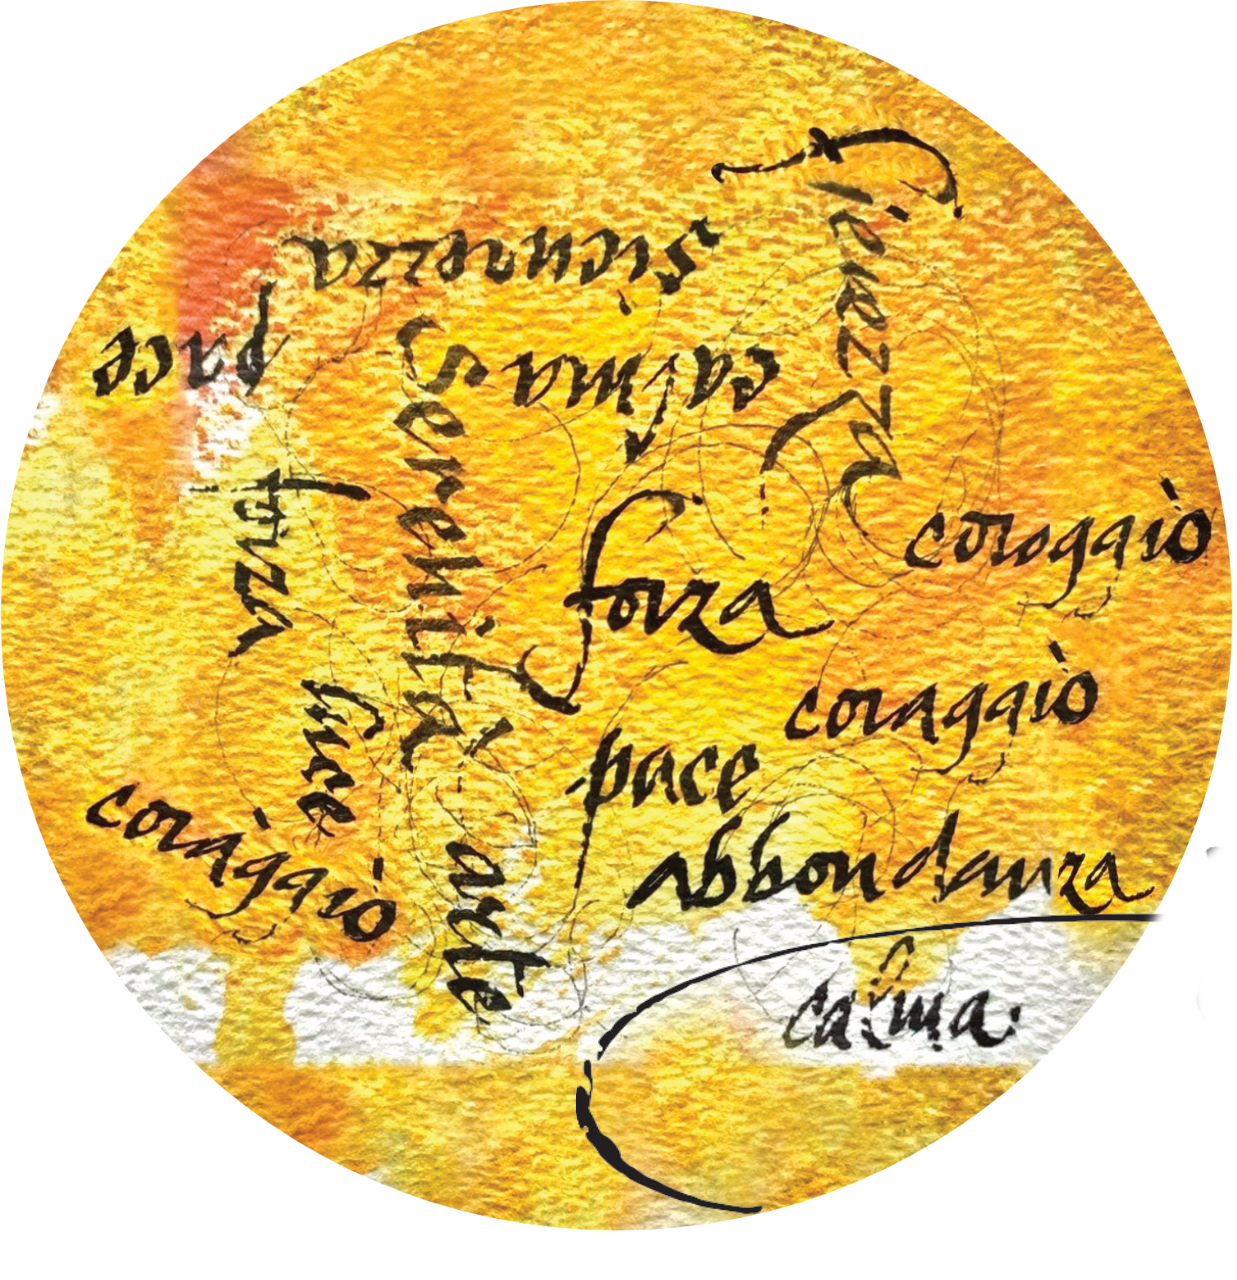 fierezza
sicurezza
pace
calma
serenità
forza
coraggio
forza
coraggio
luce
pace
coraggio
abbondanza
arte
calma.